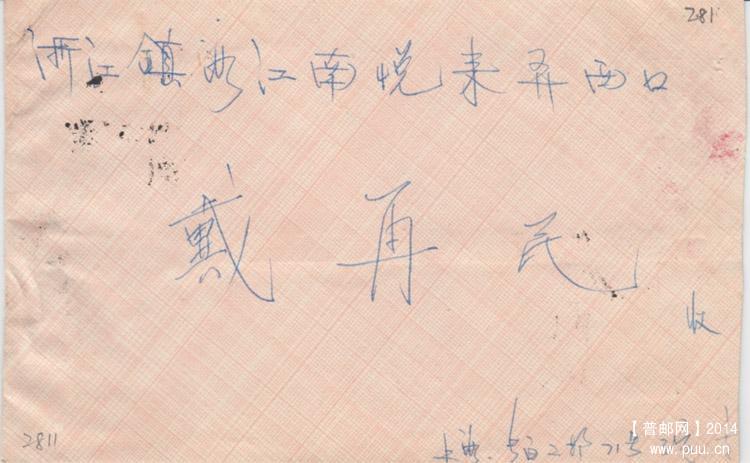 281
浙江鎮海江南悦来弄西口
戴再民
收
2811
【普邮网】2014
www.puu.cn